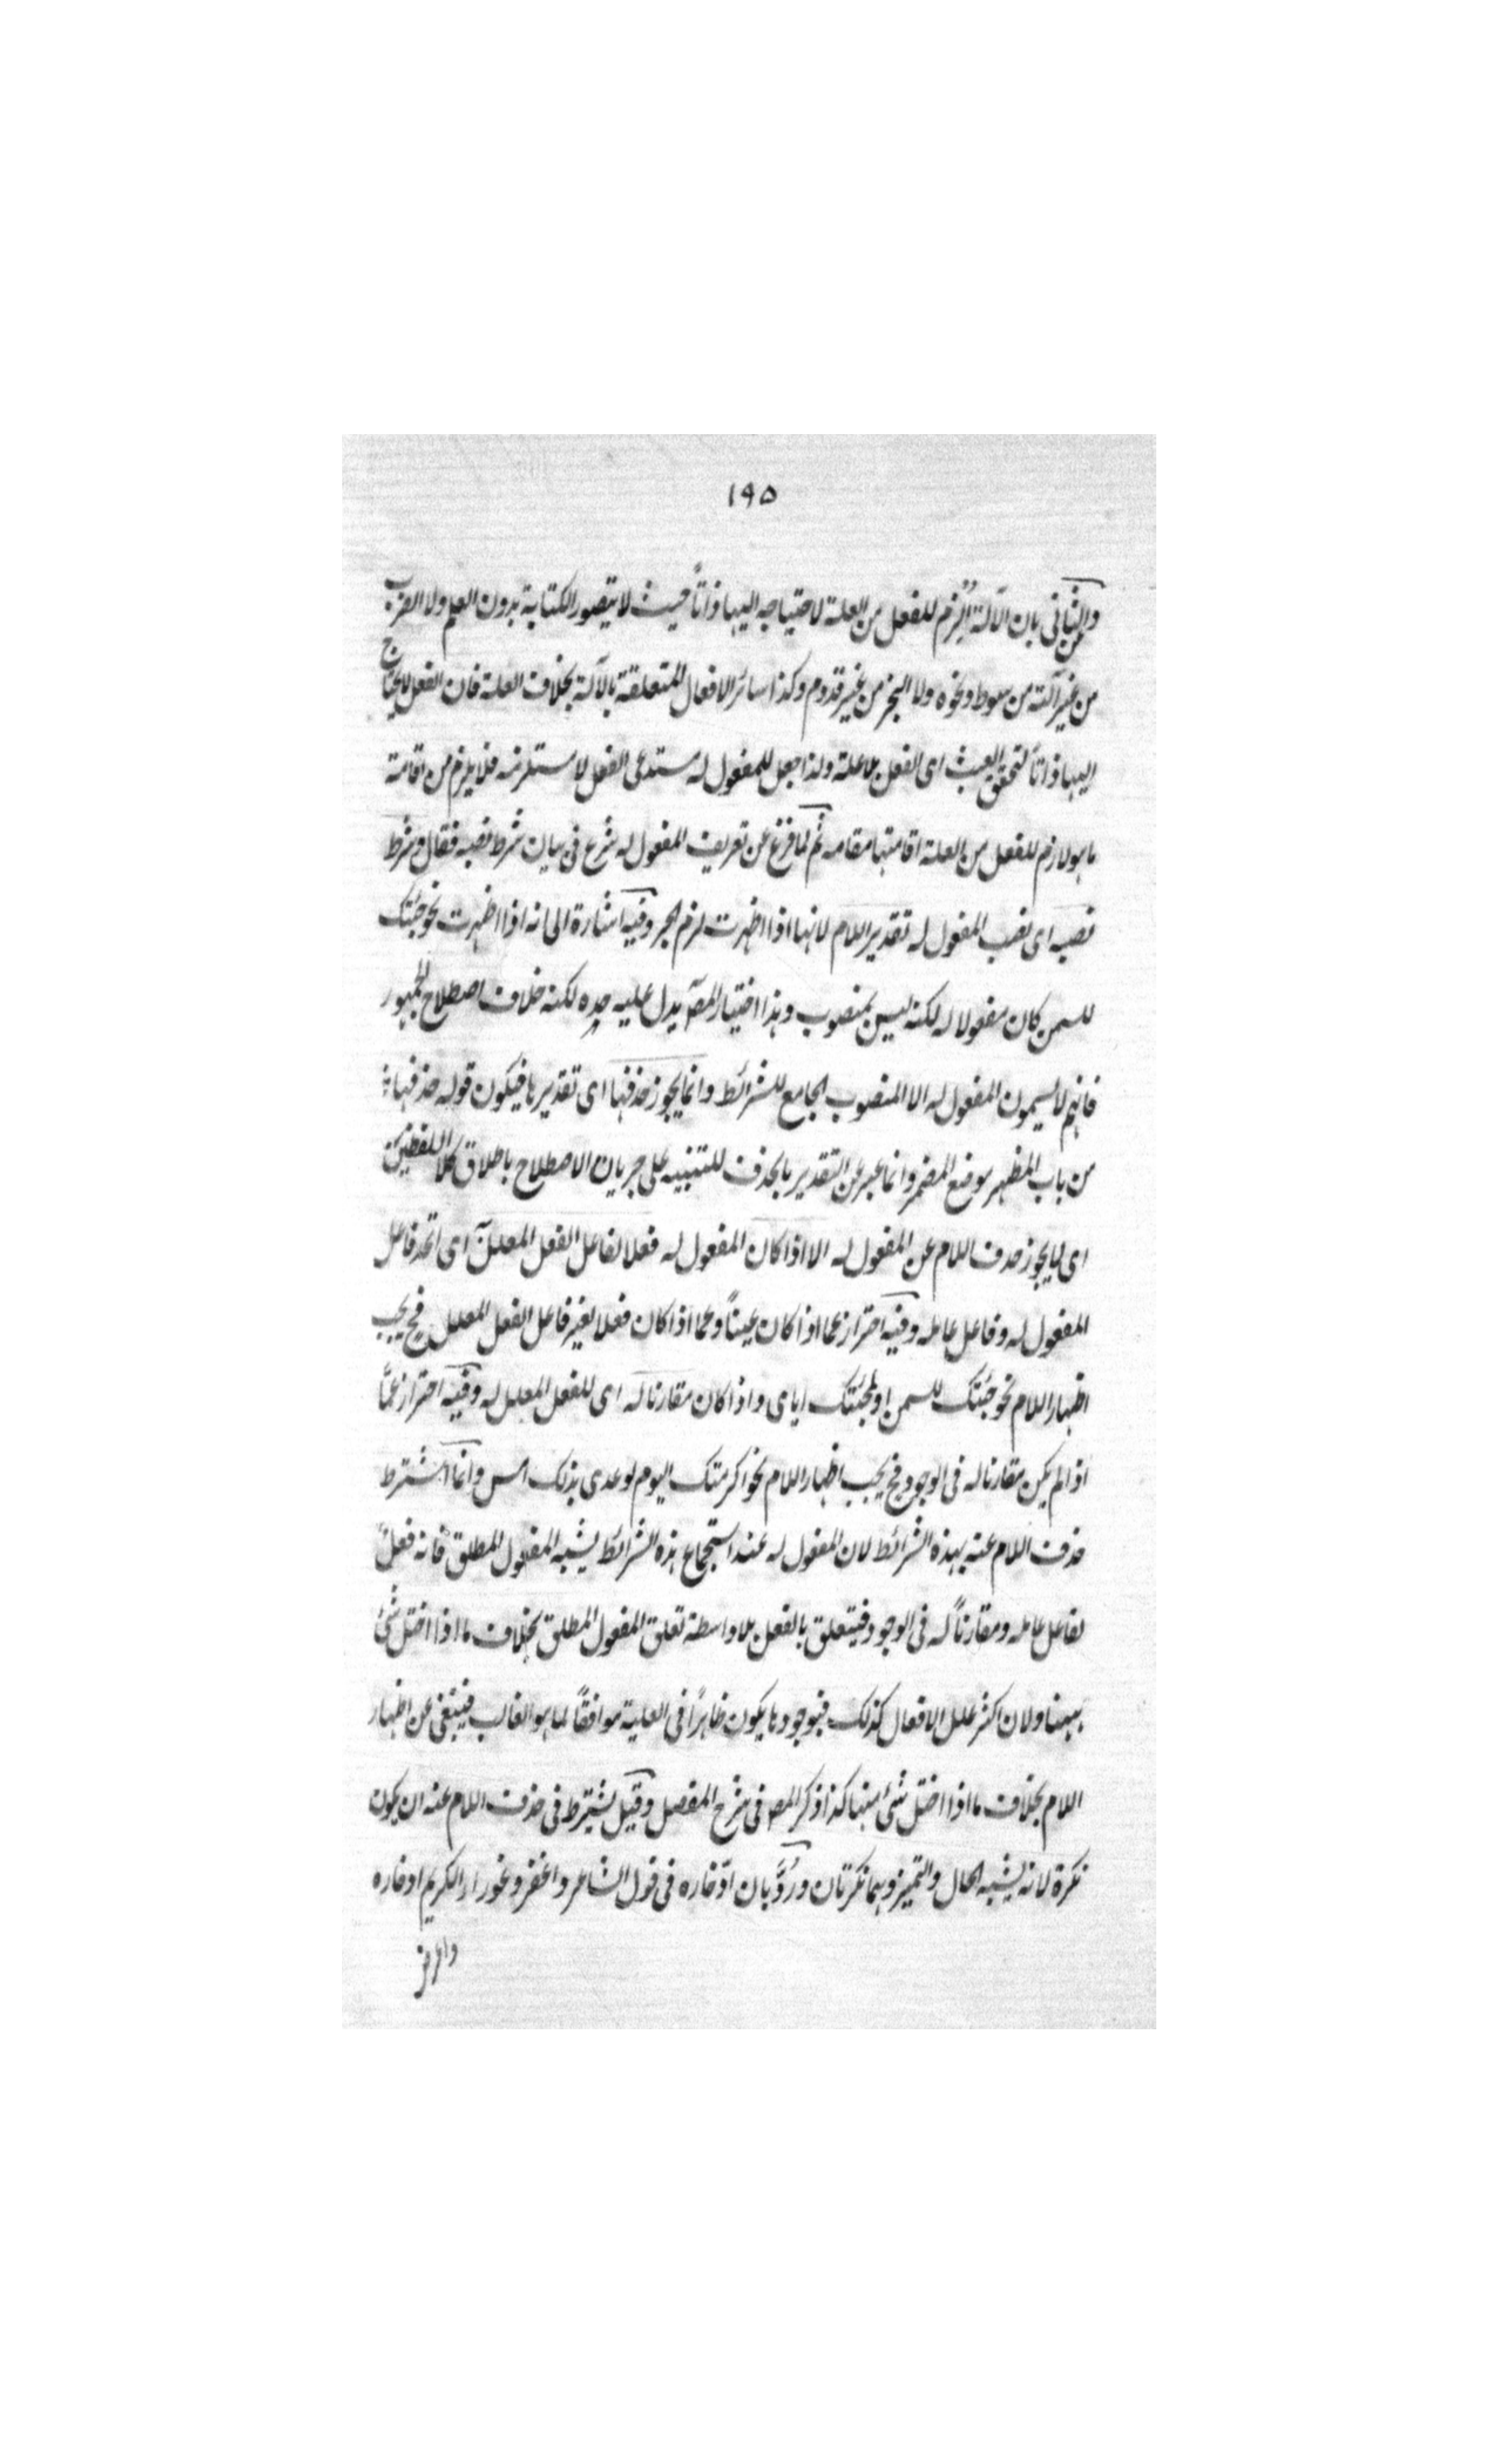 ١٩٥
وعن الثانى بان الآلة الزم للفعل من العلة لاحتياجه اليها ذاتاً حيث لا يتصور الكتابة بدون القلم ولا الضرب
من غير آلته من سوط ونحوه ولا النجر من غير قدوم وكذا سائر الافعال المتعلقة بالآلة بخلاف العلة فان الفعل لا يحتاج
اليها ذاتاً لتحقق العبث اى الفعل بلا علة ولذا جعل المفعول له مستدعى الفعل لا مستلزمه فلا يلزم من اقامة
ما هو لازم للفعل من العلة اقامتها مقامه ثم لما فرغ عن تعريف المفعول له شرع فى بيان شرط نصبه فقال وشرط
نصبه اى نصب المفعول له تقدير اللام لانها اذا اظهرت لزم الجر وفيه اشارة الى انه اذا اظهرت نحو جئتك
للسمن كان مفعولا له لكنه ليس بمنصوب وهذا اختيار المصـ يدل عليه حده لكنه خلاف اصطلاح الجمهور
فانهم لا يسمون المفعول له الا المنصوب الجامع للشرائط وانما يجوز حذفها اى تقديرها فيكون قوله حذفها
من باب المظهر موضع المضمر وانما عبر عن التقدير بالحذف للتنبيه على جريان الاصطلاح باطلاق كلا اللفظين
اى لا يجوز حذف اللام عن المفعول له الا اذا كان المفعول له فعلا لفاعل الفعل المعلل اى اتحد فاعل
المفعول له وفاعل عامله وفيه احتراز عما اذا كان عيناً وعما اذا كان فعلا لغير فاعل الفعل المعلل فح يجب
اظهار اللام نحو جئتك للسمن او لمجئتك اياى واذا كان مقارنا له اى للفعل المعلل له وفيه احتراز عمّا
اذا لم يكن مقارنا له فى الوجود فح يجب اظهار اللام نحو اكرمتك اليوم لوعدى بذلك امس وانما اشترط
حذف اللام عنه بهذه الشرائط لان المفعول له عند استجماع هذه الشرائط يشبه المفعول المطلق فانه فعل
لفاعل عامله ومقارناً له فى الوجود فيتعلق بالفعل بلا واسطة تعلق المفعول المطلق بخلاف ما اذا اختل شئ
ههنا ولان اكثر علل الافعال كذلك فبوجودها يكون ظاهراً فى العلية موافقاً لما هو الغالب فيتغنى عن اظهار
اللام بخلاف ما اذا اختل شئ منها كذا ذكر المصـ فى شرح المفصل وقيل يشترط فى حذف اللام عنه ان يكون
نكرة لانه يشبه الحال والتميز وهما نكرتان ورُدَّ بان ادّخاره فى قول الشاعر واغفر عوراء الكريم ادخاره
واعرض